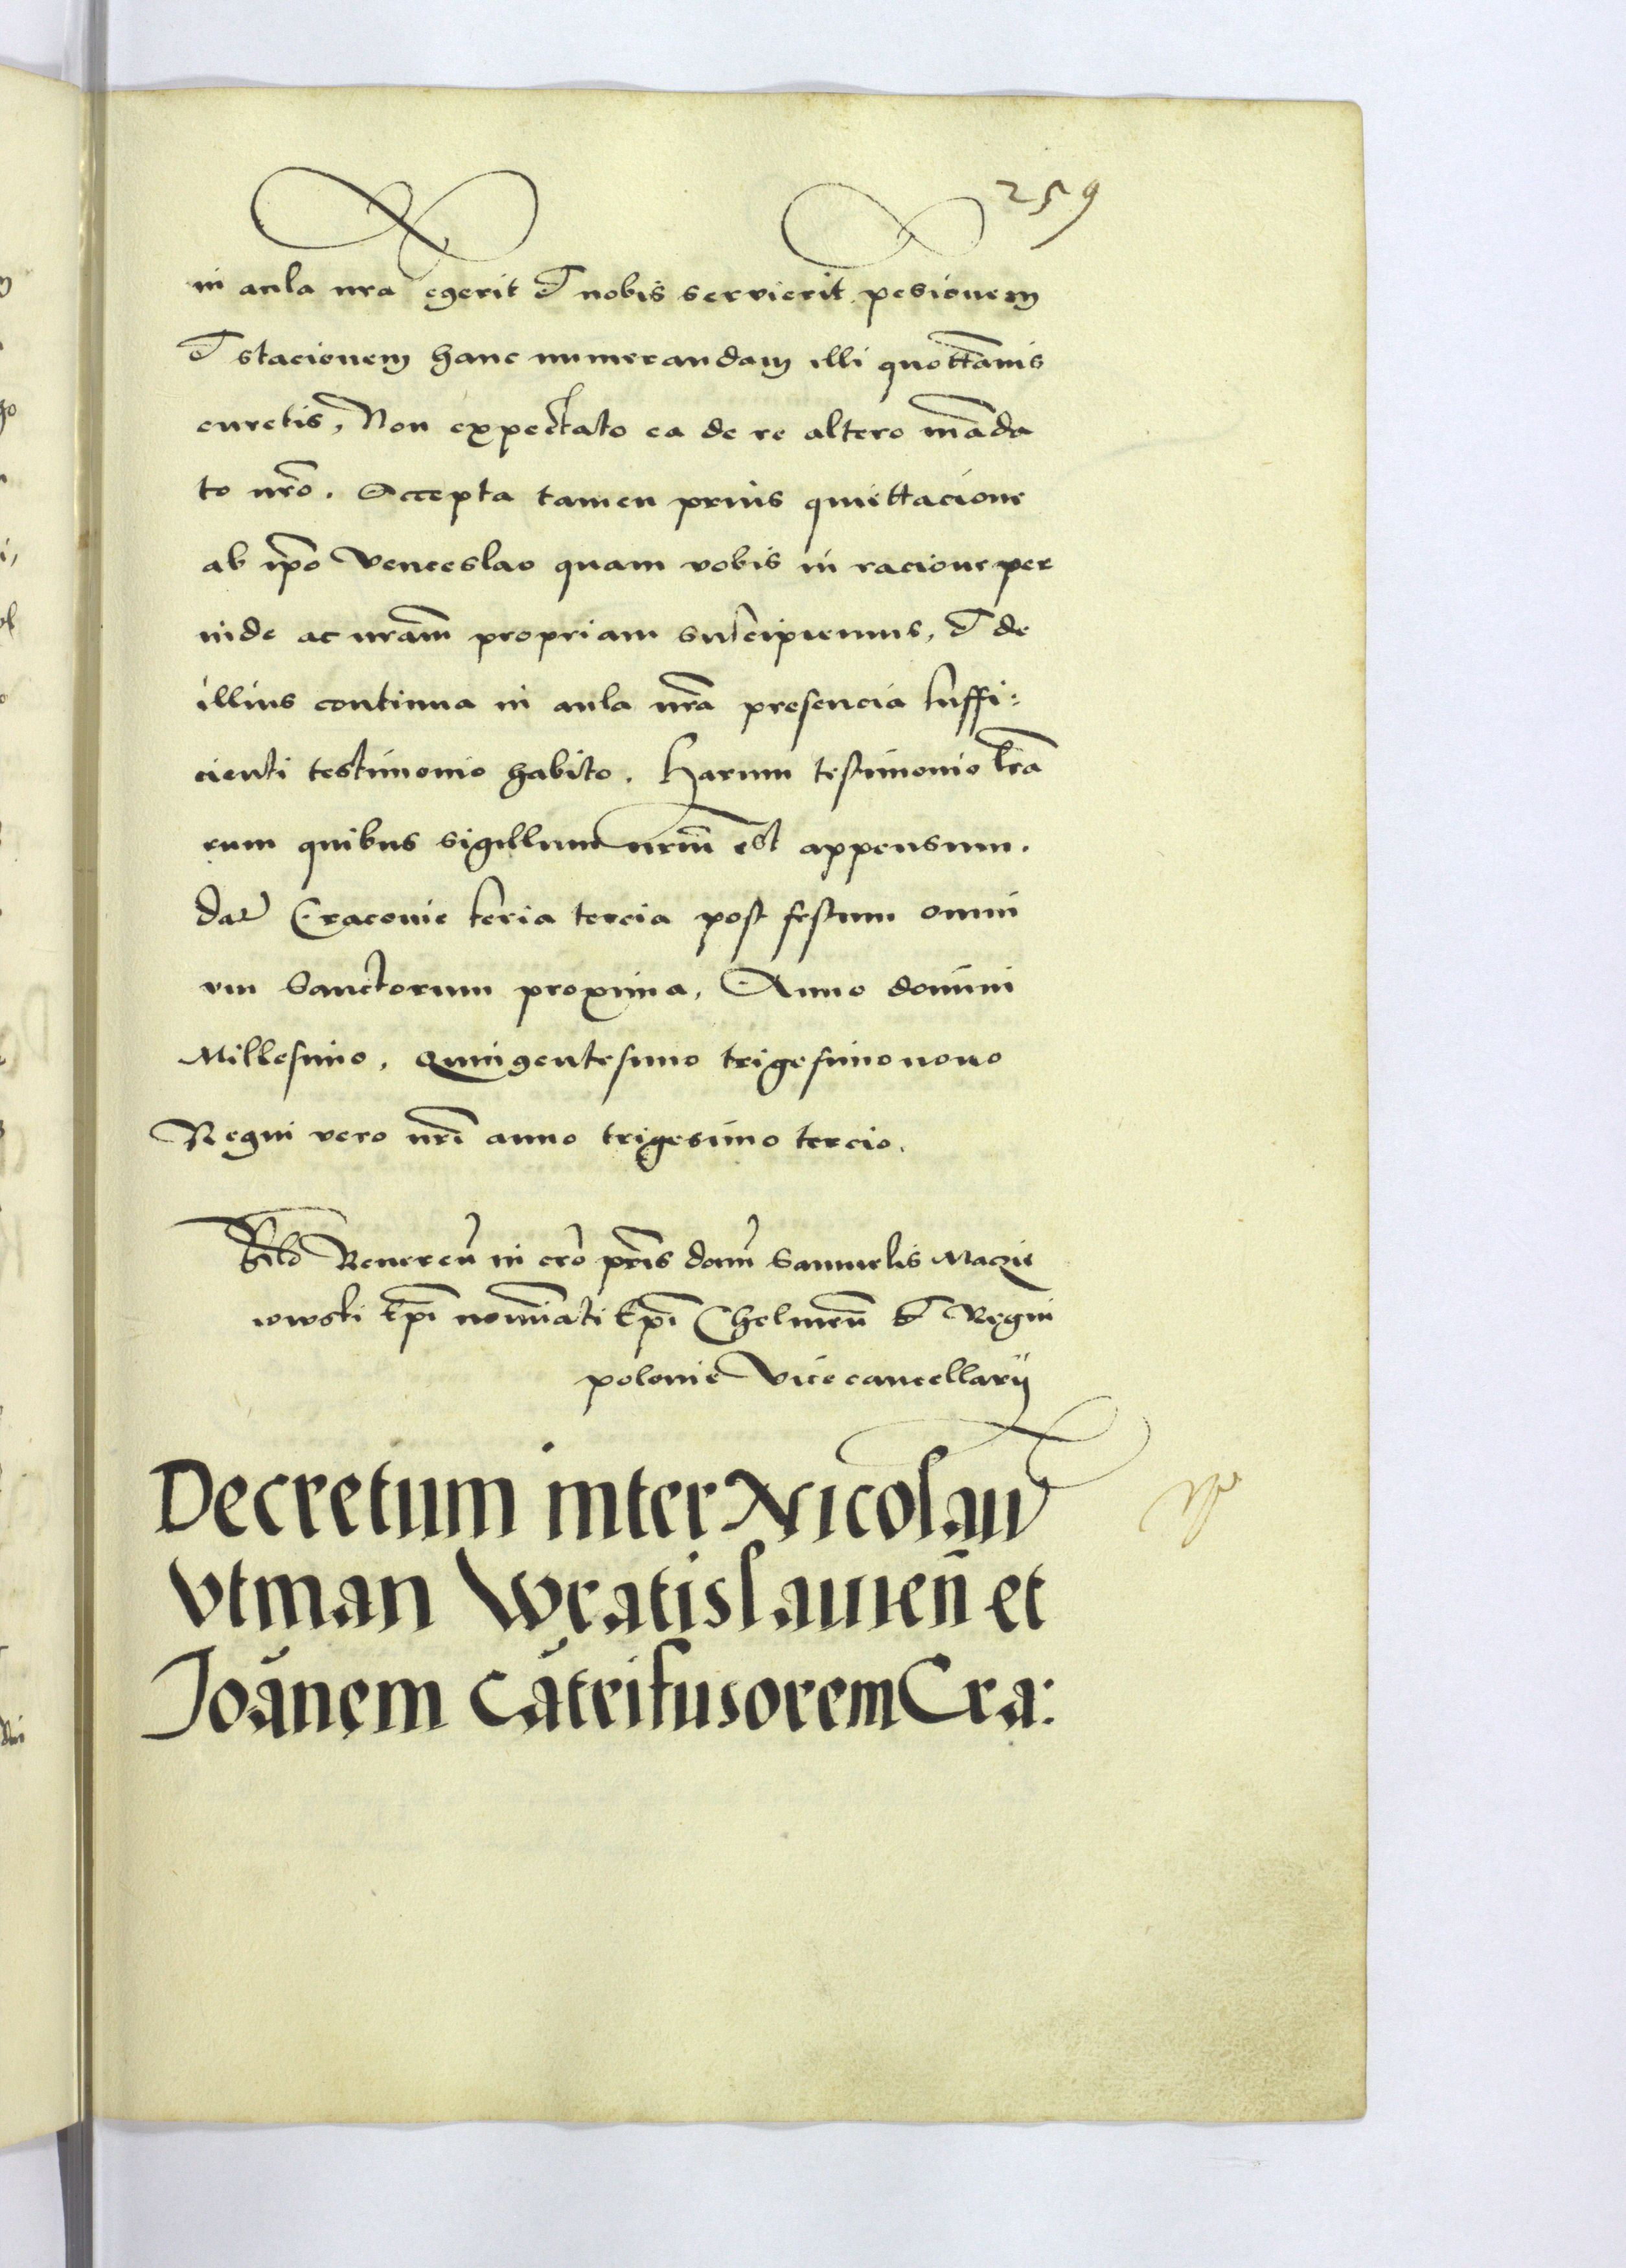 259
in aula nra egerit et nobis servierit pesionem
et stacionem hanc numerandam illi quottānis
curetis, Non expectato ea de re altero māda
to nrō. Accepta tamen prius quiettacione
ab ipō Venceslao quam vobis in racione per
inde ac nrām propriam suscipiemus, et de
illius continua in aula nrā presencia suffi:
cienti testimonio habito. Harum testimonio lrā
rum quibus sigillum nrm̄ est appensum.
dat Cracovie feria tercia post festum omni
um Sanctorum proxima, Anno domini
Millesimo, quingentesimo trigesimo nono
Regni vero nrī anno trigesimo tercio.
Rēlo Reveren̄ in crō prīs domī Samuelis Maczie
iowski Epī nomīati Epī Chelmen̄ et Regni
polonie Vicecancellarij
Decretum inter Nicolau
Vtman Wratislauien̄ et
Joānem cātrifusorem Cra: